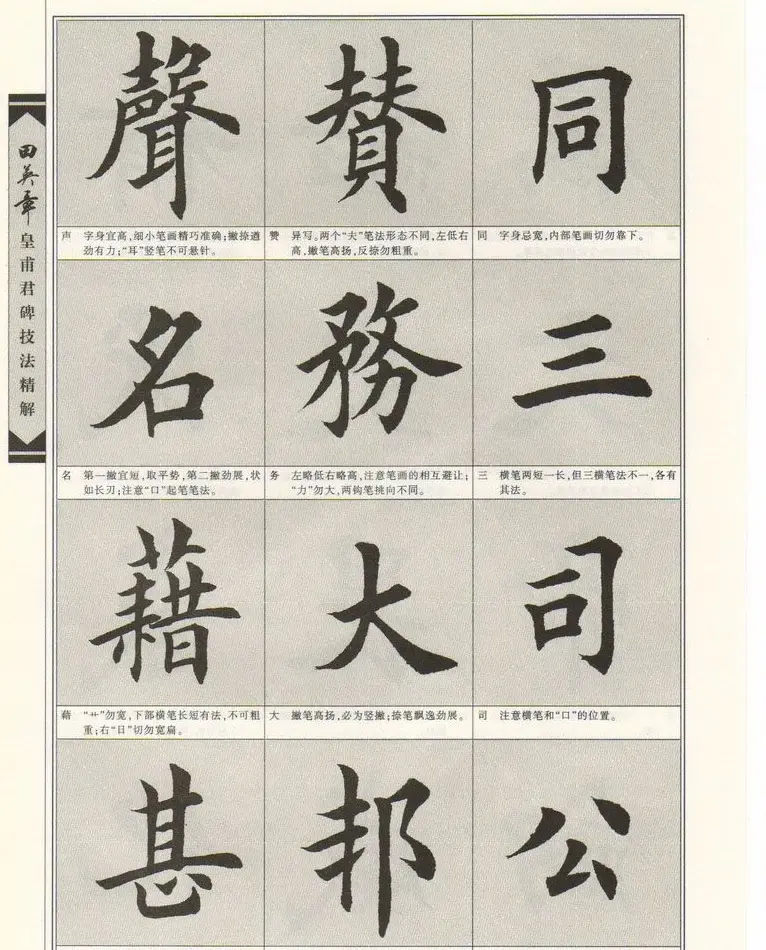 田英章
皇甫君碑技法精解
聲
贊
同
声 字身宜高，细小笔画精巧准确；撇捺遒
劲有力；“耳”竖笔不可悬针。
赞 异写。两个“夫”笔法形态不同，左低右
高，撇笔高扬，反捺勿粗重。
同 字身忌宽，内部笔画切勿靠下。
名
務
三
名 第一撇宜短，取平势，第二撇劲展，状
如长刃；注意“口”起笔笔法。
务 左略低右略高，注意笔画的相互避让；
“力”勿大，两钩笔挑向不同。
三 横笔两短一长，但三横笔法不一，各有
其法。
藉
大
司
藉 “艹”勿宽，下部横笔长短有法，不可粗
重；右“日”切勿宽扁。
大 撇笔高扬，必为竖撇；捺笔飘逸劲展。
司 注意横笔和“口”的位置。
甚
邦
公